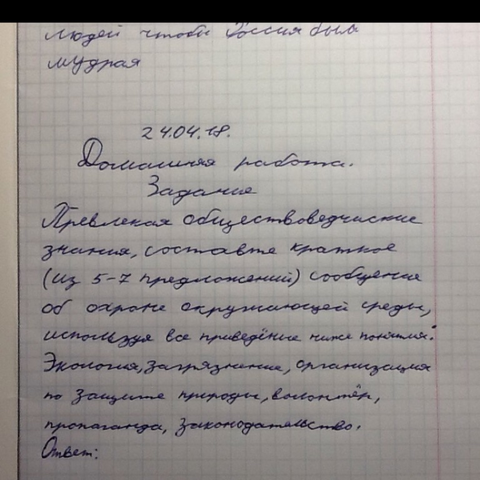 людей чтобы Россия была
мудрая
24.04.18.
Домашняя работа.
Задание
Превлекая обществоведчиские
знания, составте краткое
(из 5-7 предложений) сообщение
об охране окружающей среды,
используя все приведёные ниже понятия:
Экология, загрязнение, организация
по защите природы, волонтёр,
пропаганда, законодательство.
Ответ: